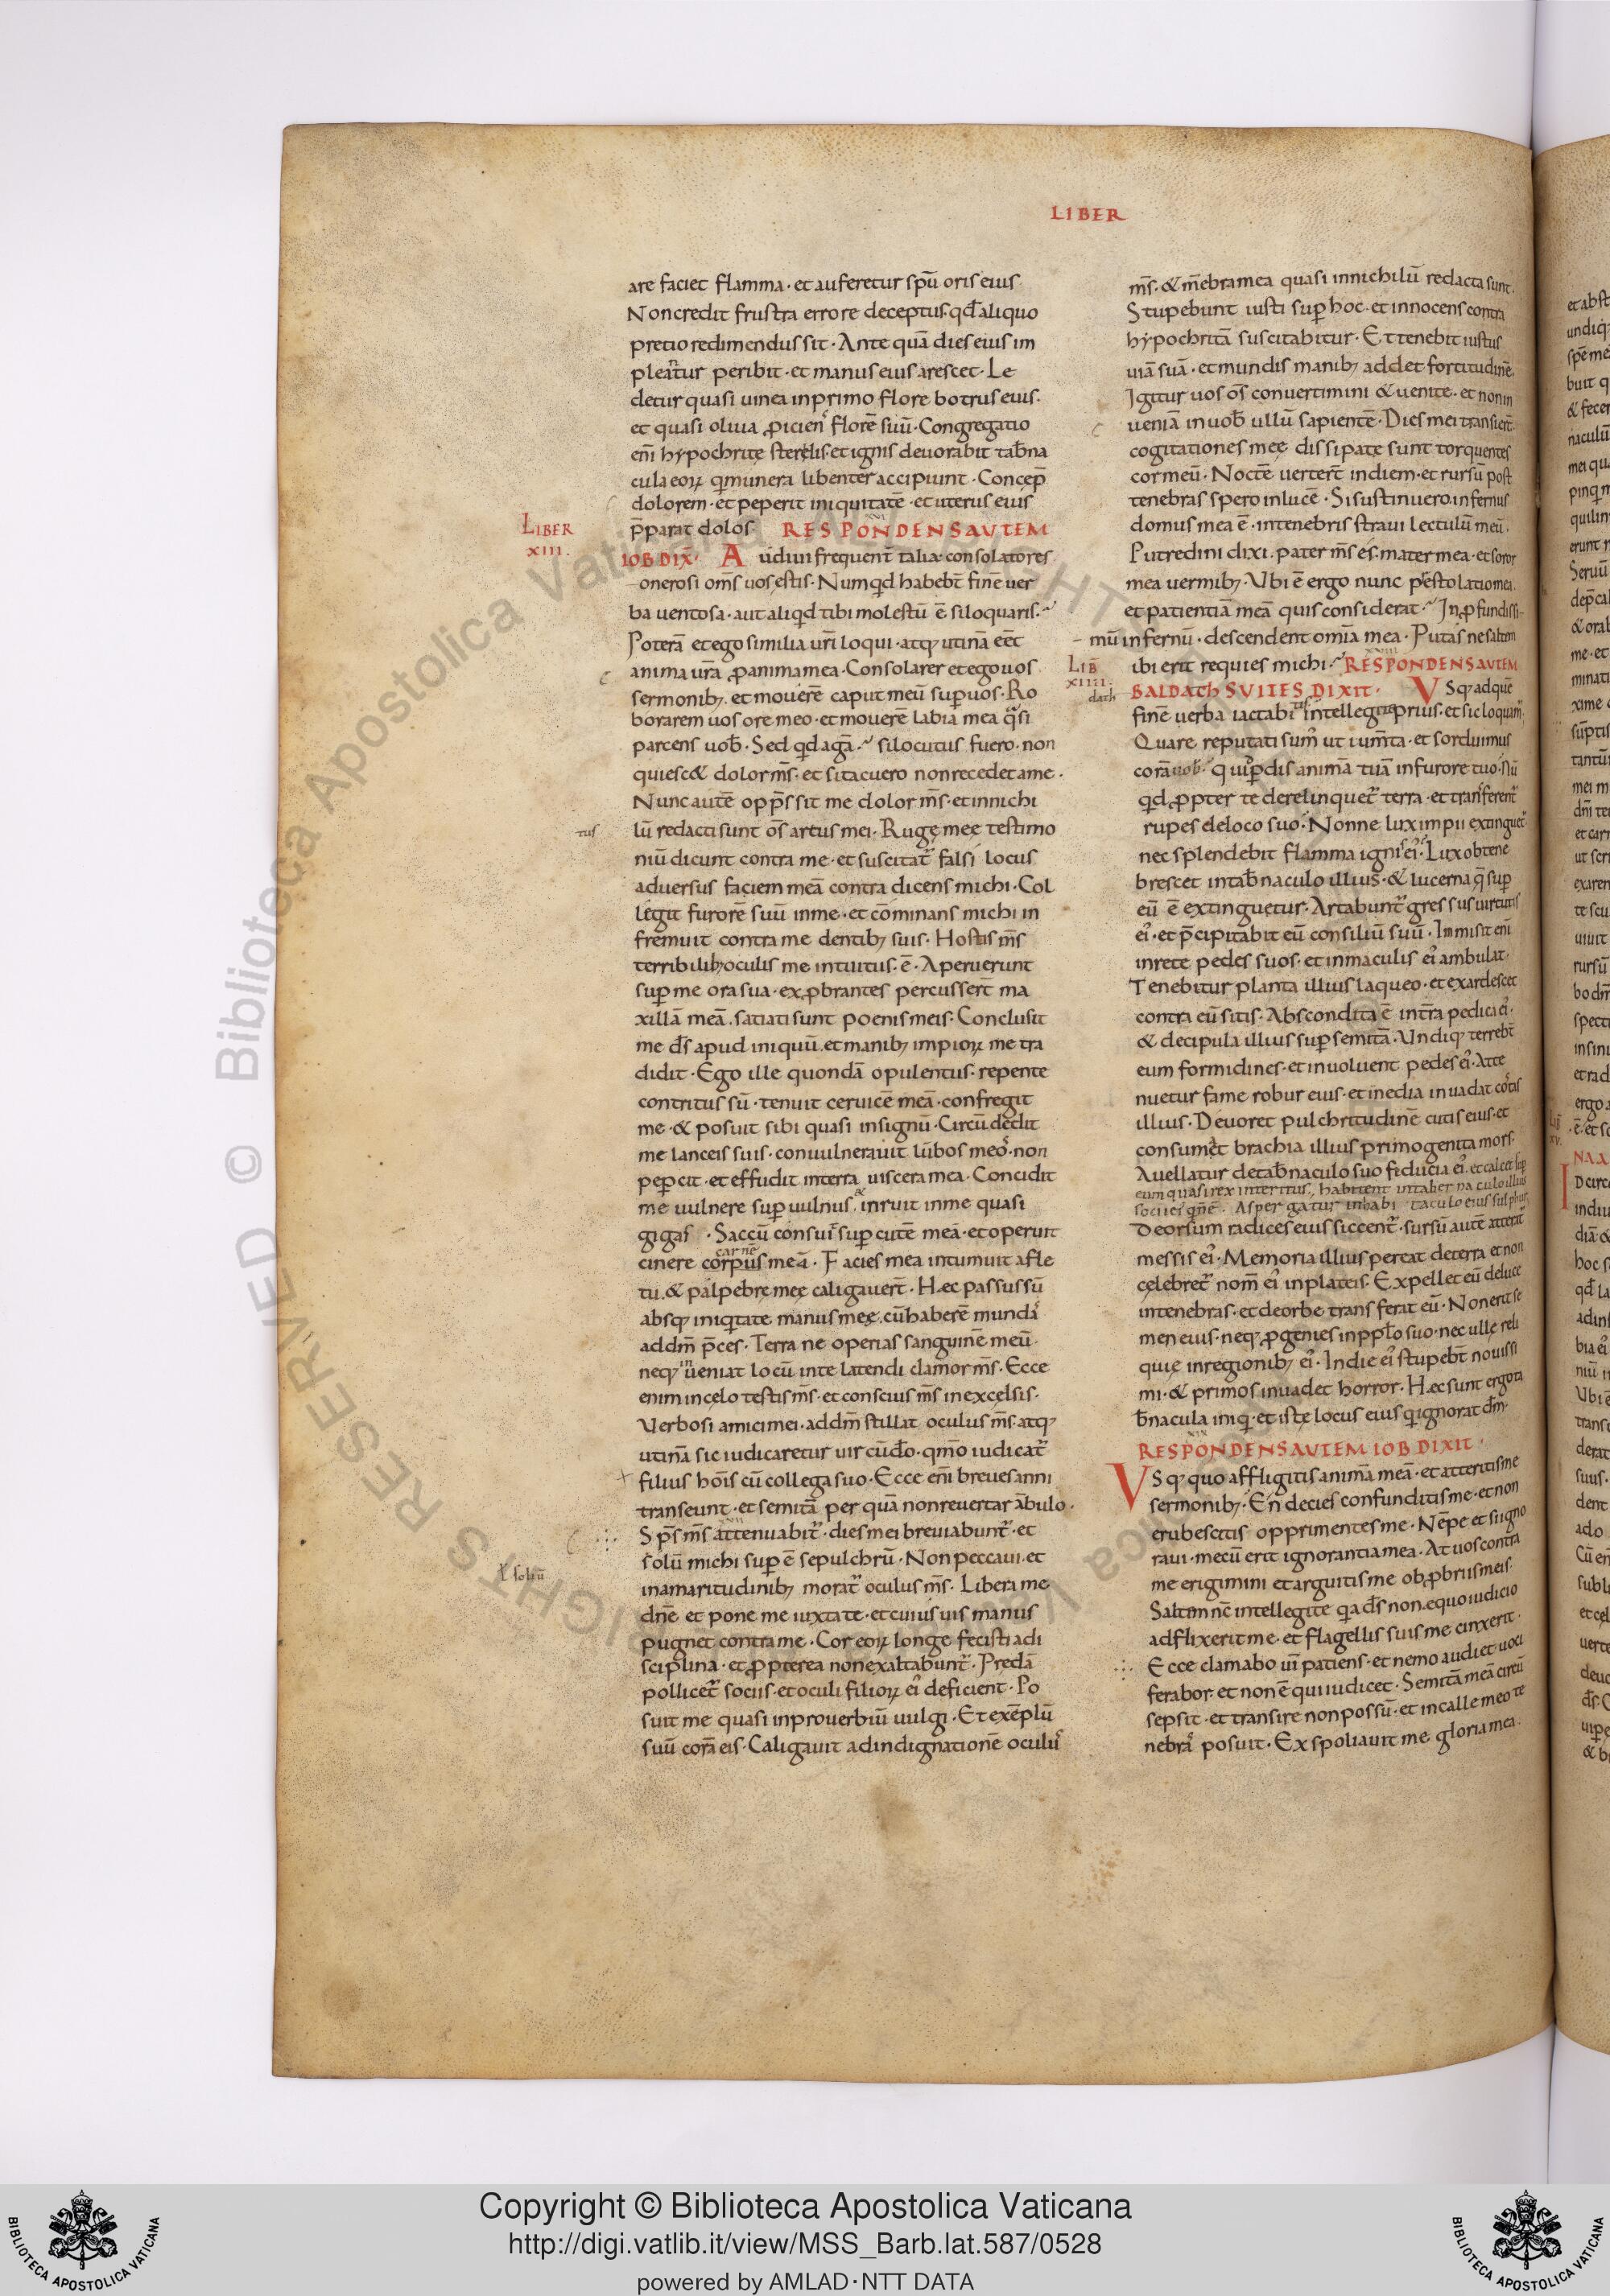 LIBER
are faciet flamma · et auferetur spū oris eius ·
Non credit frustra errore deceptus · qđ aliquo
pretio redimendus sit · Ante quā dies eius im
pleatur peribit · et manus eius arescet · Le
detur quasi uinea in primo flore botrus eius ·
et quasi oliua ꝓiciens florē suū · Congregatio
enī hypochritę sterelis · et ignis deuorabit tab̄na
cula eoꝝ q munera libenter accipiunt · Concep̄
dolorem · et peperit iniquitatē · et uterus eius
p̄parat dolos RESPONDENS AVTEM
LIBER
XIII.
IOB DIX̄ · Audiui frequent̄ talia · consolatores
onerosi om̄s uos estis · Numqd habebt̄ finē uer
ba uentosa · aut aliqd tibi molestū ē si loquaris ·
Poterā et ego similia ur̄i loqui · atqꝫ utinā eēt
anima ur̄a ꝓ anima mea · Consolarer et ego uos
sermonibꝫ · et mouerē caput meū suꝑ uos · Ro
borarem uos ore meo · et mouerē labia mea qͣsi
parcens uob̄ · Sed qd agā · si locutus fuero · non
quiesc& dolor m̄s · et si tacuero non recedet a me ·
Nunc autē opp̄ssit me dolor m̄s · et in nichi
tus
lū redacti sunt om̄s artus mei · Rugę męę testimo
niū dicunt contra me · et suscitat᷑ falsi locus
aduersus faciem meā contra dicens michi · Col
legit furorē suū in me · et cōminans michi in
fremuit contra me dentibꝫ suis · Hostis m̄s
terribilibꝫ oculis me intuitus · ē · Aperuerunt
suꝑ me ora sua · exꝓbrantes percussert̄ ma
xillā meā · satiati sunt poenis meis · Conclusit
me d̄s apud iniquū · et manibꝫ impioꝝ me tra
didit · Ego ille quondā opulentus · repente
contritus sū · tenuit ceruicē meā · confregit
me · & posuit sibi quasi in signū · Circūdedit
me lanceis suis · conuulnerauit lūbos meos · non
peꝑcit · et effudit in terra uiscera mea · Concidit
me uulnere suꝑ uulnus, inruit in me quasi
gigas · Saccū consui suꝑ cutē meā · et operuit
carnē
cinere corpus meā · Facies mea intumuit a fle
tu · & palpebrę męę caligauert̄ · Hęc passus sū
absqꝫ iniqͥtate manus męę, cū haberē mundas
ad dm̄ p̄ces · Terra ne operias sanguinē meū ·
neqꝫ inueniat locū in te latendi clamor m̄s · Ecce
enim in cęlo testis m̄s · et conscius m̄s in excelsis ·
Verbosi amici mei · ad dm̄ stillat oculus m̄s · atqꝫ
utinā sic iudicaretur uir cū dō · qm̄o iudicat᷑
filius hōis cū collega suo · Ecce enī breues anni
transeunt · et semitā per quā non reuertar ābulo ·
Sp̄s m̄s attenuabit᷑ · dies mei breuiabunt᷑ · et
solū michi suꝑ ē sepulchrū · Non peccaui · et
ł solū
in amaritudinibꝫ morat᷑ oculus m̄s · Libera me
dn̄e et pone me iuxta te · et cuius uis manus
pugnet contra me · Cor eoꝝ longe fecisti a di
sciplina · et ꝓpterea non exaltabunt᷑ · Predā
pollicet᷑ sociis · et oculi filioꝝ ei᷒ deficient · Po
suit me quasi in prouerbiū uulgi · Et exēplū
suū corā eis · Caligauit ad indignationē oculus
m̄s · & mēbra mea quasi in nichilū redacta sunt ·
Stupebunt iusti suꝑ hoc · et innocens contra
hypochritā suscitabitur · Et tenebit iustus
uiā suā · et mundis manibꝫ addet fortitudinē ·
Igitur uos om̄s conuertimini & uenite · et non in
ueniā in uob̄ ullū sapientē · Dies mei transiert̄ ·
cogitationes męę dissipatę sunt torquentes
cor meū · Noctē uertert̄ in diem · et rursū post
tenebras spero in lucē · Si sustinuero · infernus
domus mea ē · in tenebris straui lectulū meū ·
Putredini dixi · pater m̄s es · mater mea · et soror
mea uermibꝫ · Vbi ē ergo nunc p̄estolatio mea ·
et patientiā meā quis considerat · In ꝓfundissi
mū infernū · descendent om̄ia mea · Putas ne saltim
ibi erit requies michi · RESPONDENS AVTEM
LIB̄
XIIII.
BALDATH SVITES DIXIT · Vsqꝫ ad quē
dath
finē uerba iactabitis intellegite prius · et sic loquam᷑ ·
Quare reputati sum᷒ ut ium̄ta · et sorduimus
corā uob̄ · qui ꝑdis animā tuā in furore tuo · Nū
qd ꝓpter te derelinquet᷑ terra · et transferent᷑
rupes de loco suo · Nonne lux impii extinguet᷑
nec splendebit flamma ignis ei᷒ · Lux obtene
brescet in tab̄naculo illius · & lucerna q̄ suꝑ
eū ē extinguetur · Artabunt᷑ gressus uirtutis
ei᷒ · et p̄cipitabit eū consiliū suū · Inmisit enī
in rete pedes suos · et in maculis ei᷒ ambulat ·
Tenebitur planta illius laqueo · et exardescet
contra eū sitis · Abscondita ē in tr̄a pedica ei᷒ ·
& decipula illius suꝑ semitā · Vndiqꝫ terrebt̄
eum formidines · et inuoluent pedes ei᷒ · Atte
nuetur fame robur eius · et inedia inuadat costas
illius · Deuoret pulchritudinē cutis eius · et
consumet brachia illius primogenita mors ·
Auellatur de tab̄naculo suo fiducia ei᷒ · et calcet suꝑ
eum quasi rex interitus, habitent in tabernaculo illius
socii ei᷒ qn̄ ē · Aspergatur in habitaculo eius sulphur
Deorsum radices eius siccent᷑ · sursū autē atterat᷑
messis ei᷒ · Memoria illius pereat de terra et non
celebret᷑ nom̄ ei᷒ in plateis · Expellet eū de luce
in tenebras · et de orbe transferat eū · Non erit se
men eius · neqꝫ ꝓgenies in ppl̄o suo · nec ullę reli
quię in regionibꝫ ei᷒ · In die ei᷒ stupebt̄ nouissi
mi · & primos inuadet horror · Hęc sunt ergo ta
b̄nacula iniqͥ · et iste locus eius qͥ ignorat dm̄ ·
RESPONDENS AVTEM IOB DIXIT ·
Vsqꝫ quo affligitis animā meā · et atteritis me
sermonibꝫ · En decies confunditis me · et non
erubescitis opprimentes me · Nēpe et si igno
raui · mecū erit ignorantia mea · At uos contra
me erigimini et arguitis me obꝓbriis meis ·
Saltim nc̄ intellegite qͥa d̄s non equo iudicio
adflixerit me · et flagellis suis me cinxerit ·
Ecce clamabo uim patiens · et nemo audiet · uoci
ferabor · et non ē qui iudicet · Semitā meā circū
sepsit · et transire non possū · et in calle meo te
nebras posuit · Exspoliauit me gloria mea ·
Copyright © Biblioteca Apostolica Vaticana
http://digi.vatlib.it/view/MSS_Barb.lat.587/0528
powered by AMLAD·NTT DATA
BIBLIOTECA APOSTOLICA VATICANA
BIBLIOTECA APOSTOLICA VATICANA